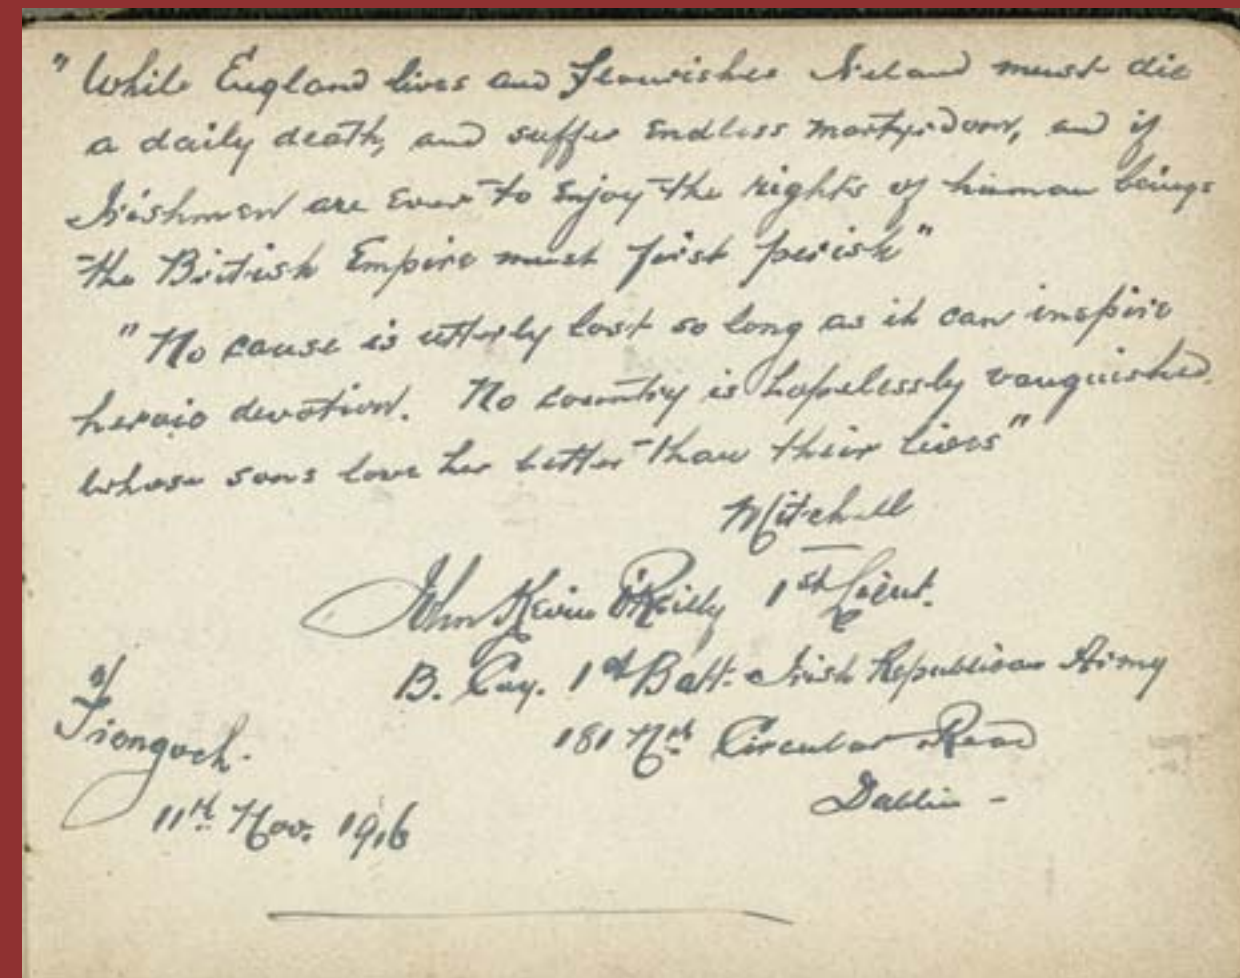 "While England lives and flourishes Ireland must die
a daily death, and suffer endless martyrdom, and if
Irishmen are ever to enjoy the rights of human beings
the British Empire must first perish"
"No cause is utterly lost so long as it can inspire
heroic devotion. No country is hopelessly vanquished
whose sons love her better than their lives"
Mitchell
John Kevin O'Reilly 1st Lieut.
B. Coy. 1st Batt. Irish Republican Army
181 Nth Circular Road
Dublin -
Frongoch.
11th Nov. 1916